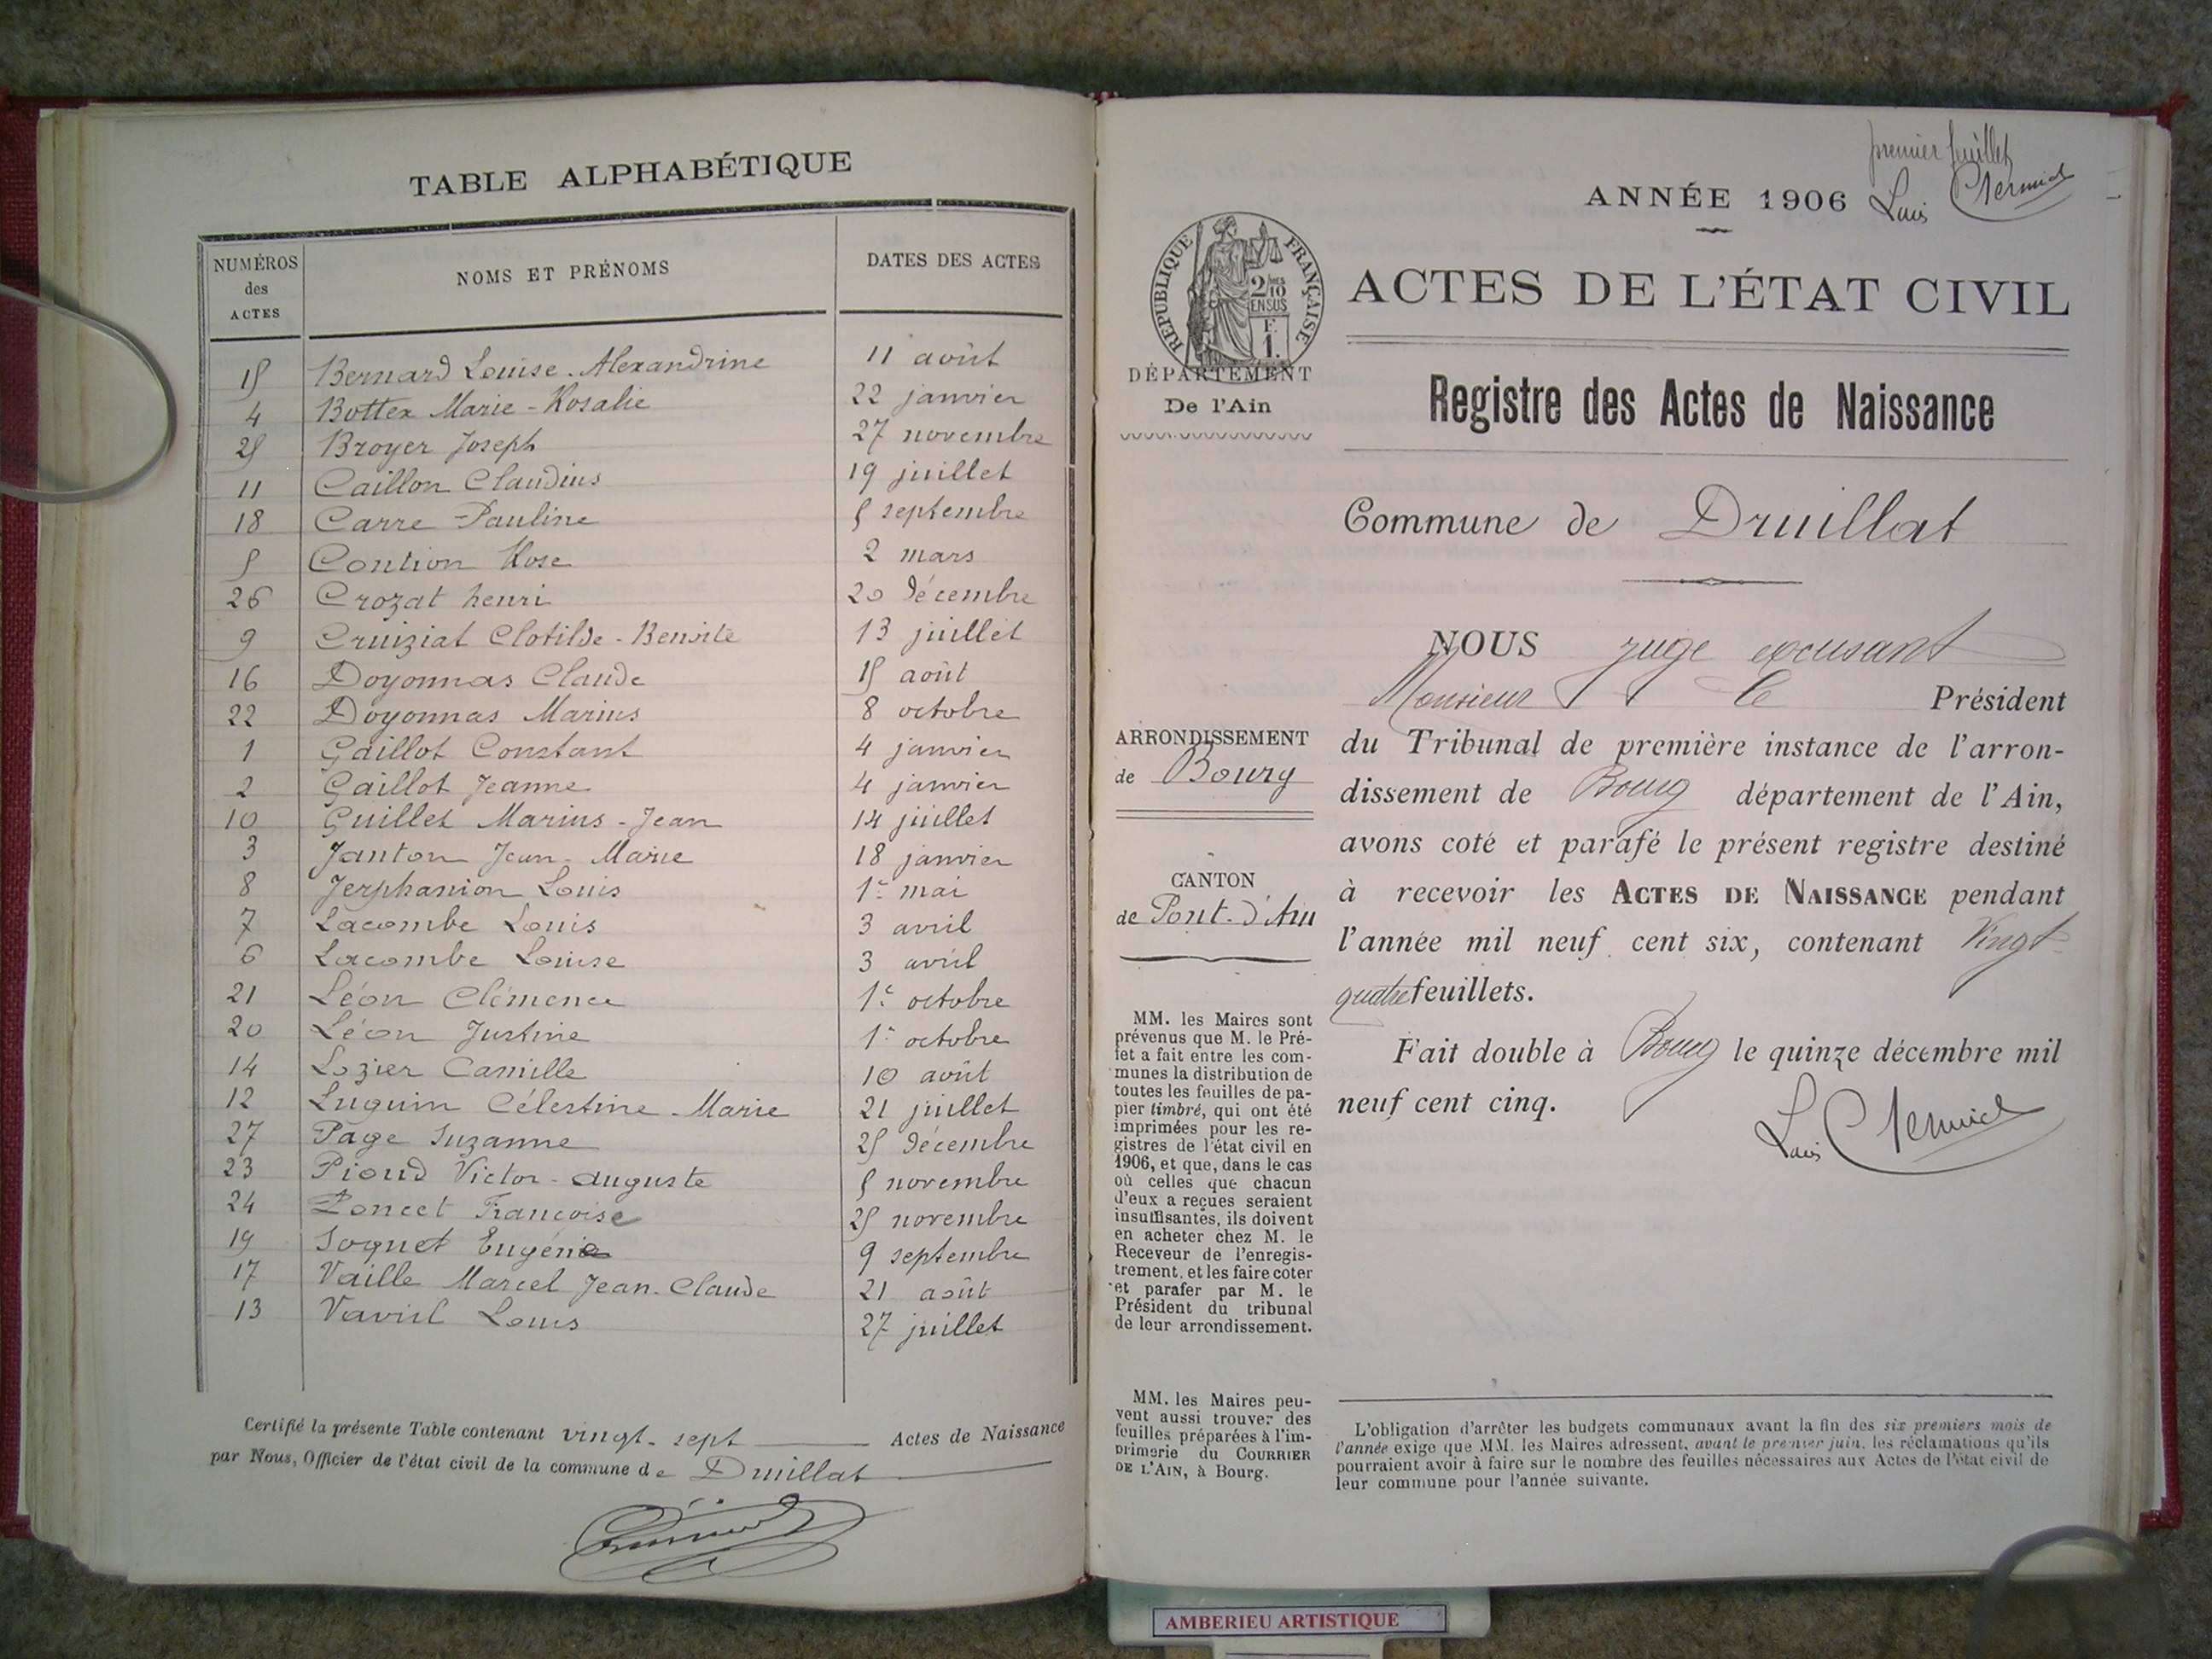 TABLE ALPHABÉTIQUE
NUMÉROS des ACTES
NOMS ET PRÉNOMS
DATES DES ACTES
15 Bernard Louise-Alexandrine 11 août
4 Bottex Marie-Rosalie 22 janvier
25 Broyer Joseph 27 novembre
11 Caillon Claudius 19 juillet
18 Carre Pauline 5 septembre
5 Contion Rose 2 mars
26 Crozat henri 20 décembre
9 Cruiziat Clotilde-Benoite 13 juillet
16 Doyonnas Claude 15 août
22 Doyonnas Marius 8 octobre
1 Gaillot Constant 4 janvier
2 Gaillot Jeanne 4 janvier
10 Guillet Marius-Jean 14 juillet
3 Janton Jean-Marie 18 janvier
8 Jerphanion Louis 1er mai
7 Lacombe Louis 3 avril
6 Lacombe Louise 3 avril
21 Léon Clémence 1er octobre
20 Léon Justine 1er octobre
14 Lozier Camille 10 août
12 Luguin Célestine-Marie 21 juillet
27 Page Suzanne 25 décembre
23 Pioud Victor-auguste 5 novembre
24 Poncet Francoise 25 novembre
19 Soquet Eugénie 9 septembre
17 Vaille Marcel Jean-Claude 21 août
13 Vavril Louis 27 juillet
Certifié la présente Table contenant vingt-sept Actes de Naissance
par Nous, Officier de l'état civil de la commune de Druillat
premier feuillet
ANNÉE 1906
Louis
RÉPUBLIQUE FRANÇAISE
2/10 EN SUS
F. 1.
ACTES DE L'ÉTAT CIVIL
DÉPARTEMENT
De l'Ain
Registre des Actes de Naissance
Commune de Druillat
NOUS juge excusant
Monsieur le Président
du Tribunal de première instance de l'arron-
dissement de Bourg département de l'Ain,
avons coté et parafé le présent registre destiné
à recevoir les ACTES DE NAISSANCE pendant
l'année mil neuf cent six, contenant Vingt
quatre feuillets.
Fait double à Bourg le quinze décembre mil
neuf cent cinq.
Louis
ARRONDISSEMENT
de Bourg
CANTON
de Pont-d'Ain
MM. les Maires sont
prévenus que M. le Pré-
fet a fait entre les com-
munes la distribution de
toutes les feuilles de pa-
pier timbré, qui ont été
imprimées pour les re-
gistres de l'état civil en
1906, et que, dans le cas
où celles que chacun
d'eux a reçues seraient
insuffisantes, ils doivent
en acheter chez M. le
Receveur de l'enregis-
trement, et les faire coter
et parafer par M. le
Président du tribunal
de leur arrondissement.
MM. les Maires peu-
vent aussi trouver des
feuilles préparées à l'im-
primerie du COURRIER
DE L'AIN, à Bourg.
L'obligation d'arrêter les budgets communaux avant la fin des six premiers mois de
l'année exige que MM. les Maires adressent, avant le premier juin, les réclamations qu'ils
pourraient avoir à faire sur le nombre des feuilles nécessaires aux Actes de l'état civil de
leur commune pour l'année suivante.
AMBERIEU ARTISTIQUE